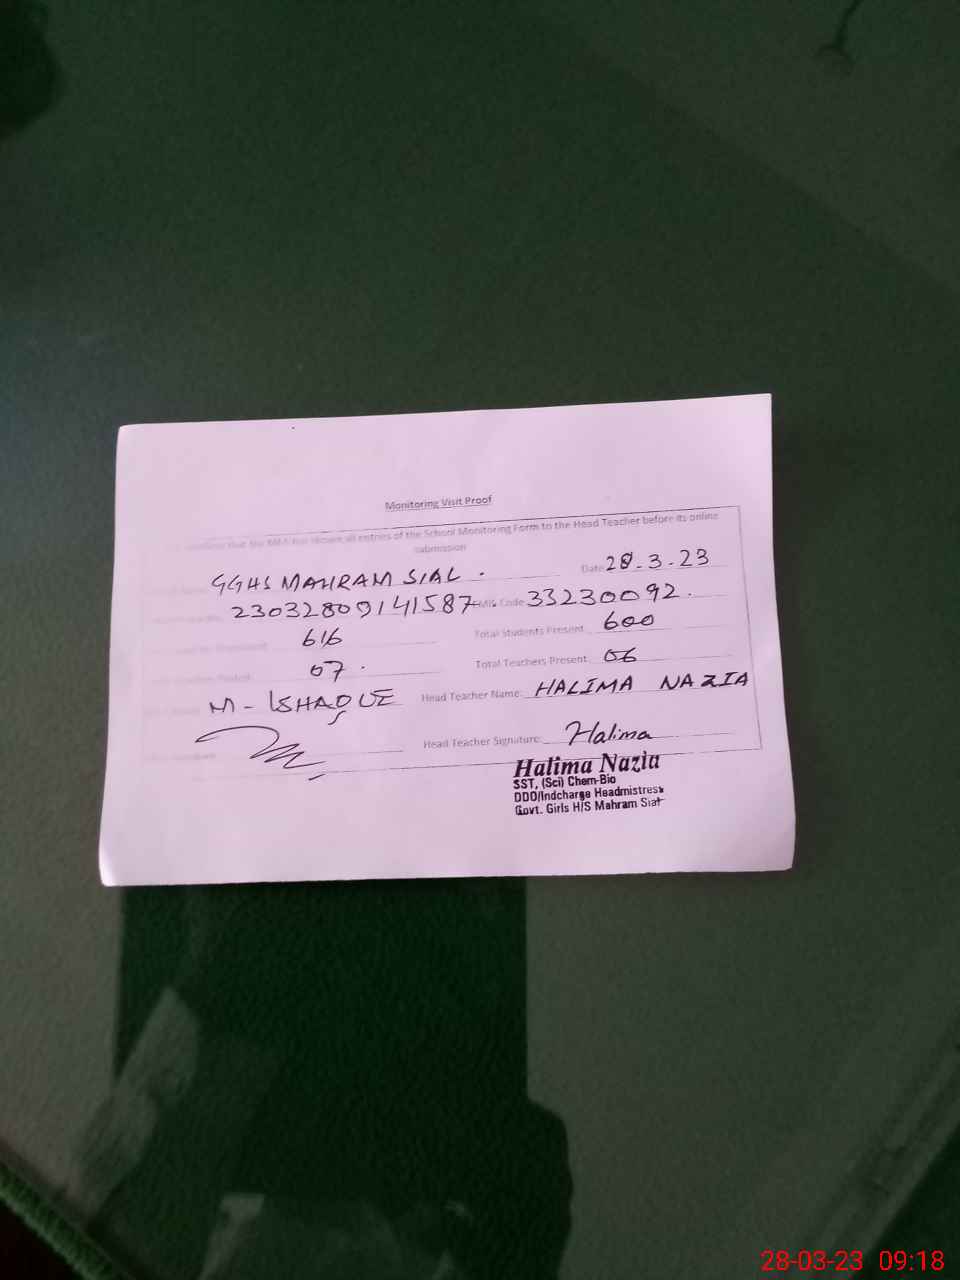 Monitoring Visit Proof
that the MEA has shown all entries of the School Monitoring Form to the Head Teacher before its online
submission
GGHS MAHRAM SIAL. Date 28.3.23
23032809141587 EMIS Code 33230092.
616 Total Students Present 600
07. Total Teachers Present 06
M-ISHAQUE Head Teacher Name: HALIMA NAZIA
Head Teacher Signature: Halima
Halima Nazia
SST, (Sci) Chem-Bio
DDO/Indcharge Headmistress
Govt. Girls H/S Mahram Sial
28-03-23 09:18